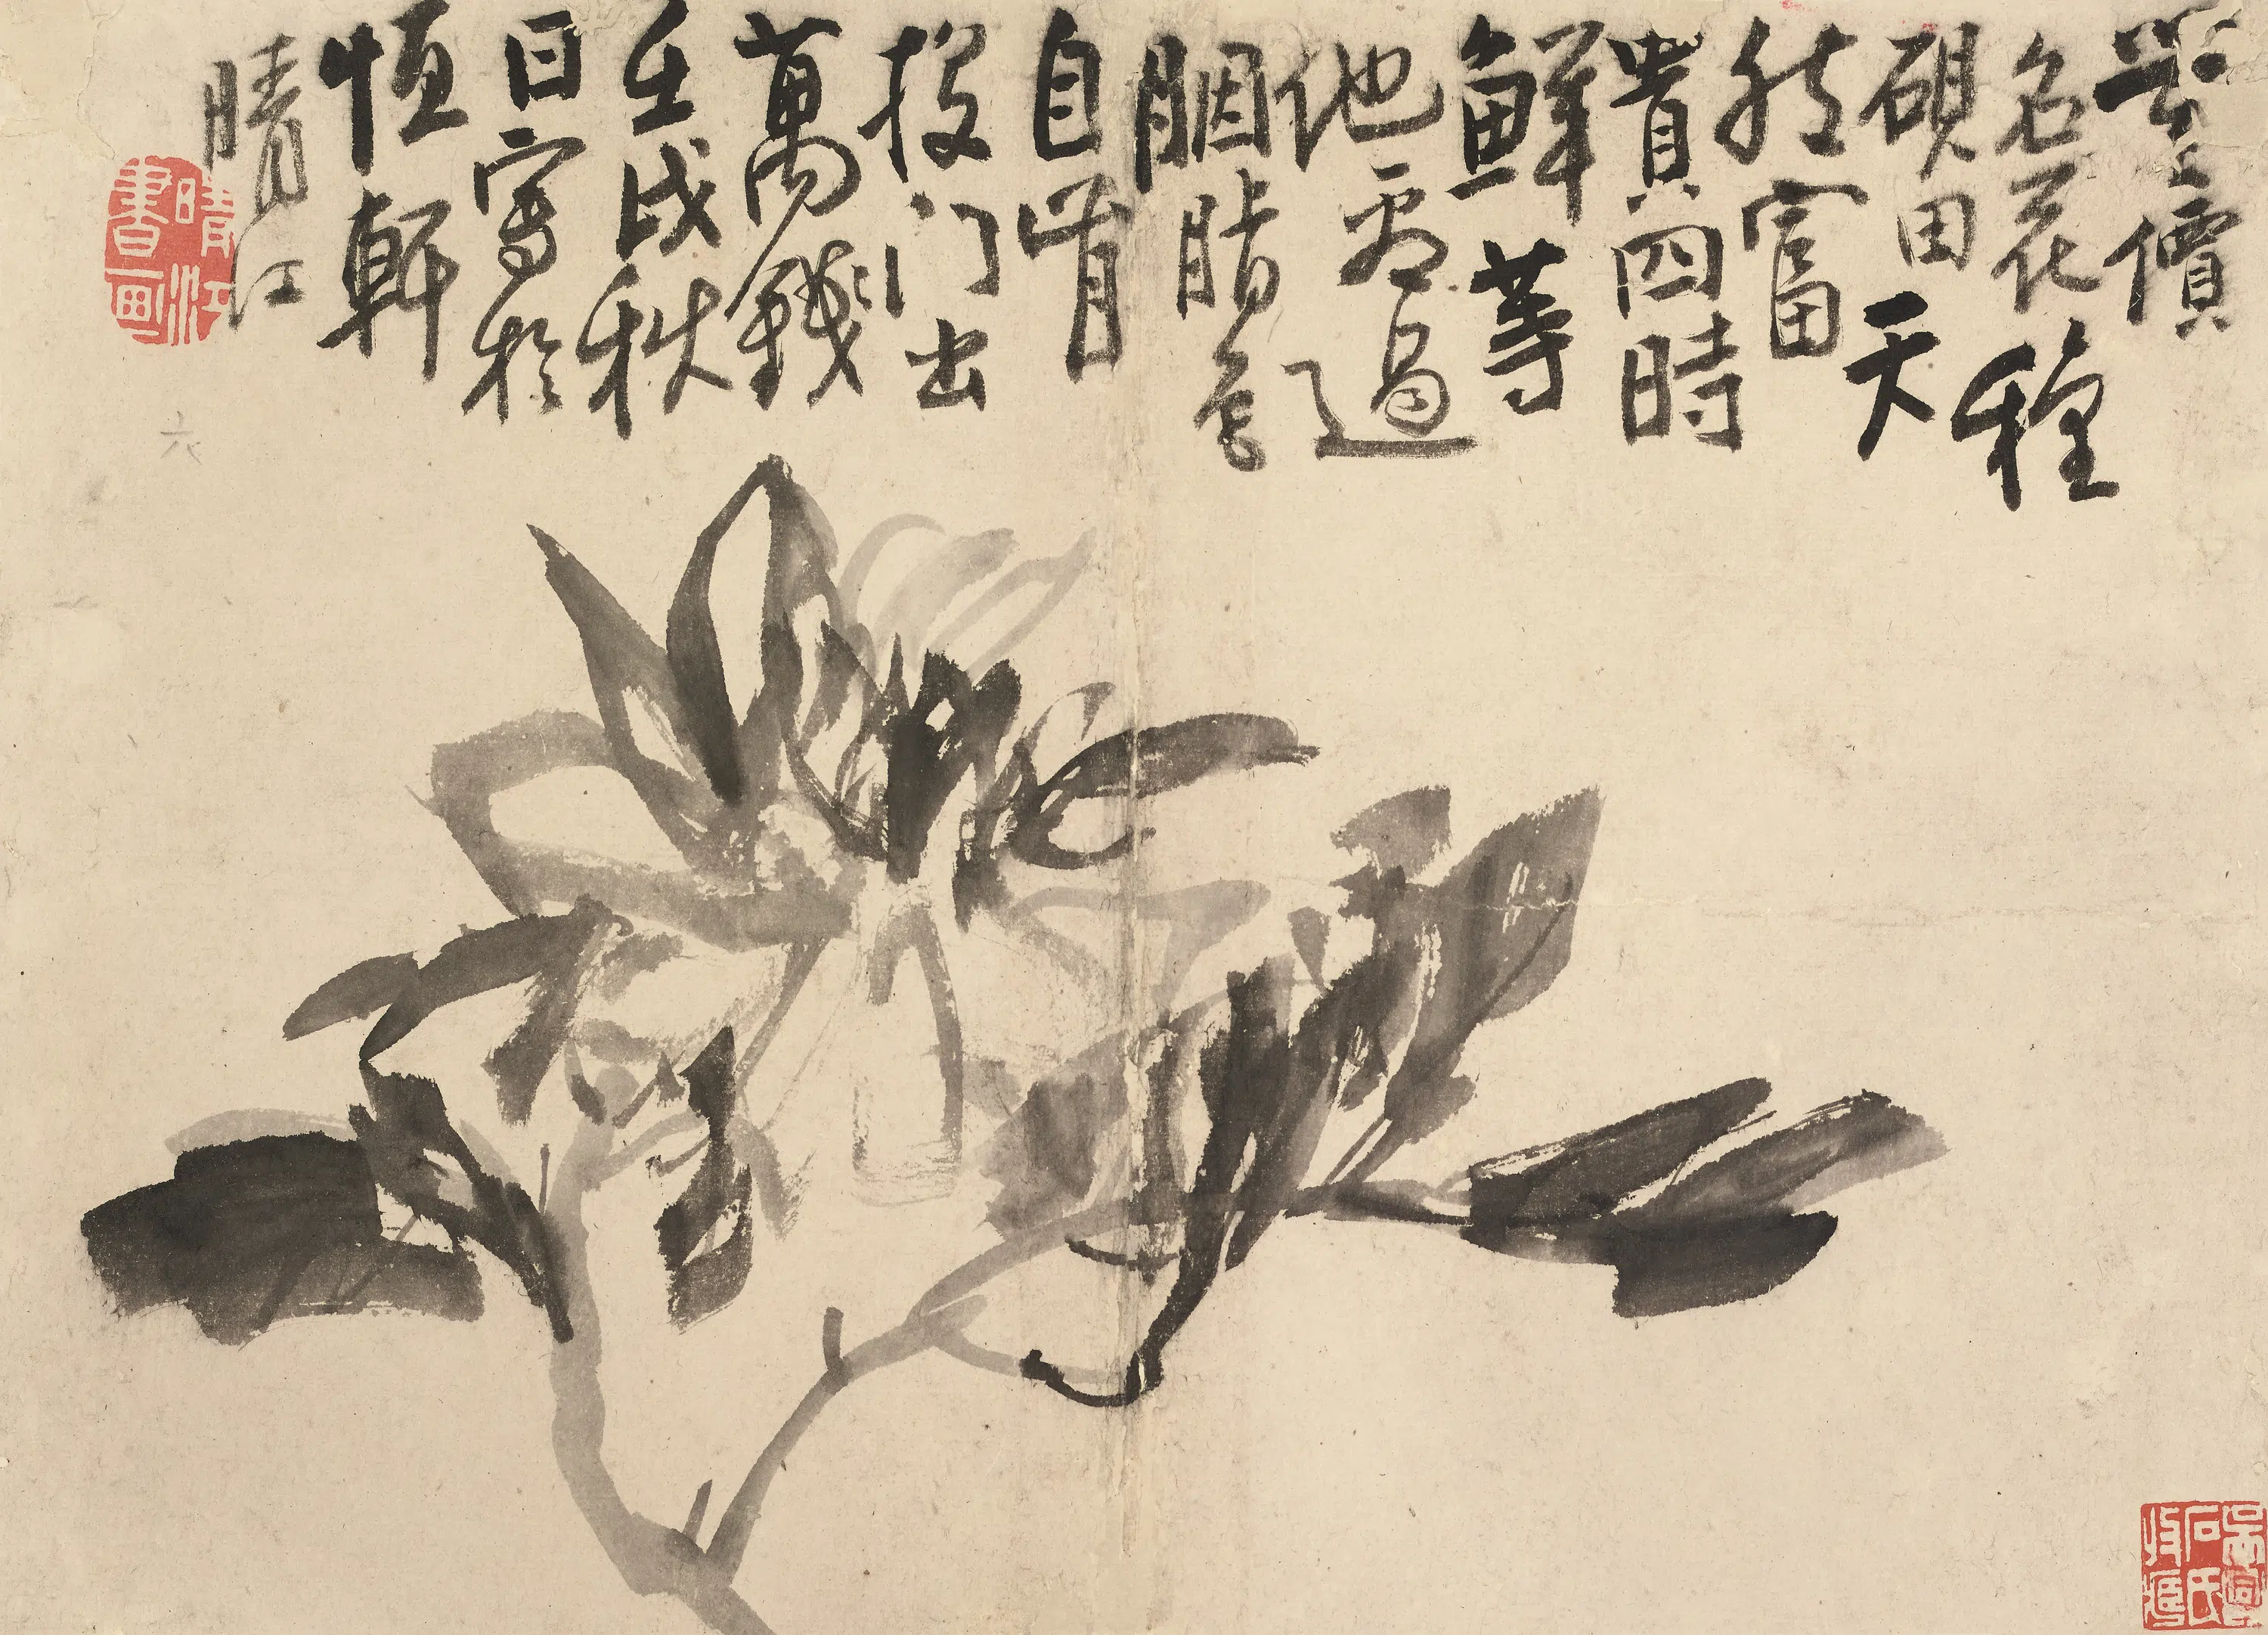 無價
名花種
硯田天
然富
貴四時
鮮等
他看過
胭脂色
自肯
投门出
萬錢
壬戌秋
日寫於
恒軒
晴江
晴江
書画
六
石氏